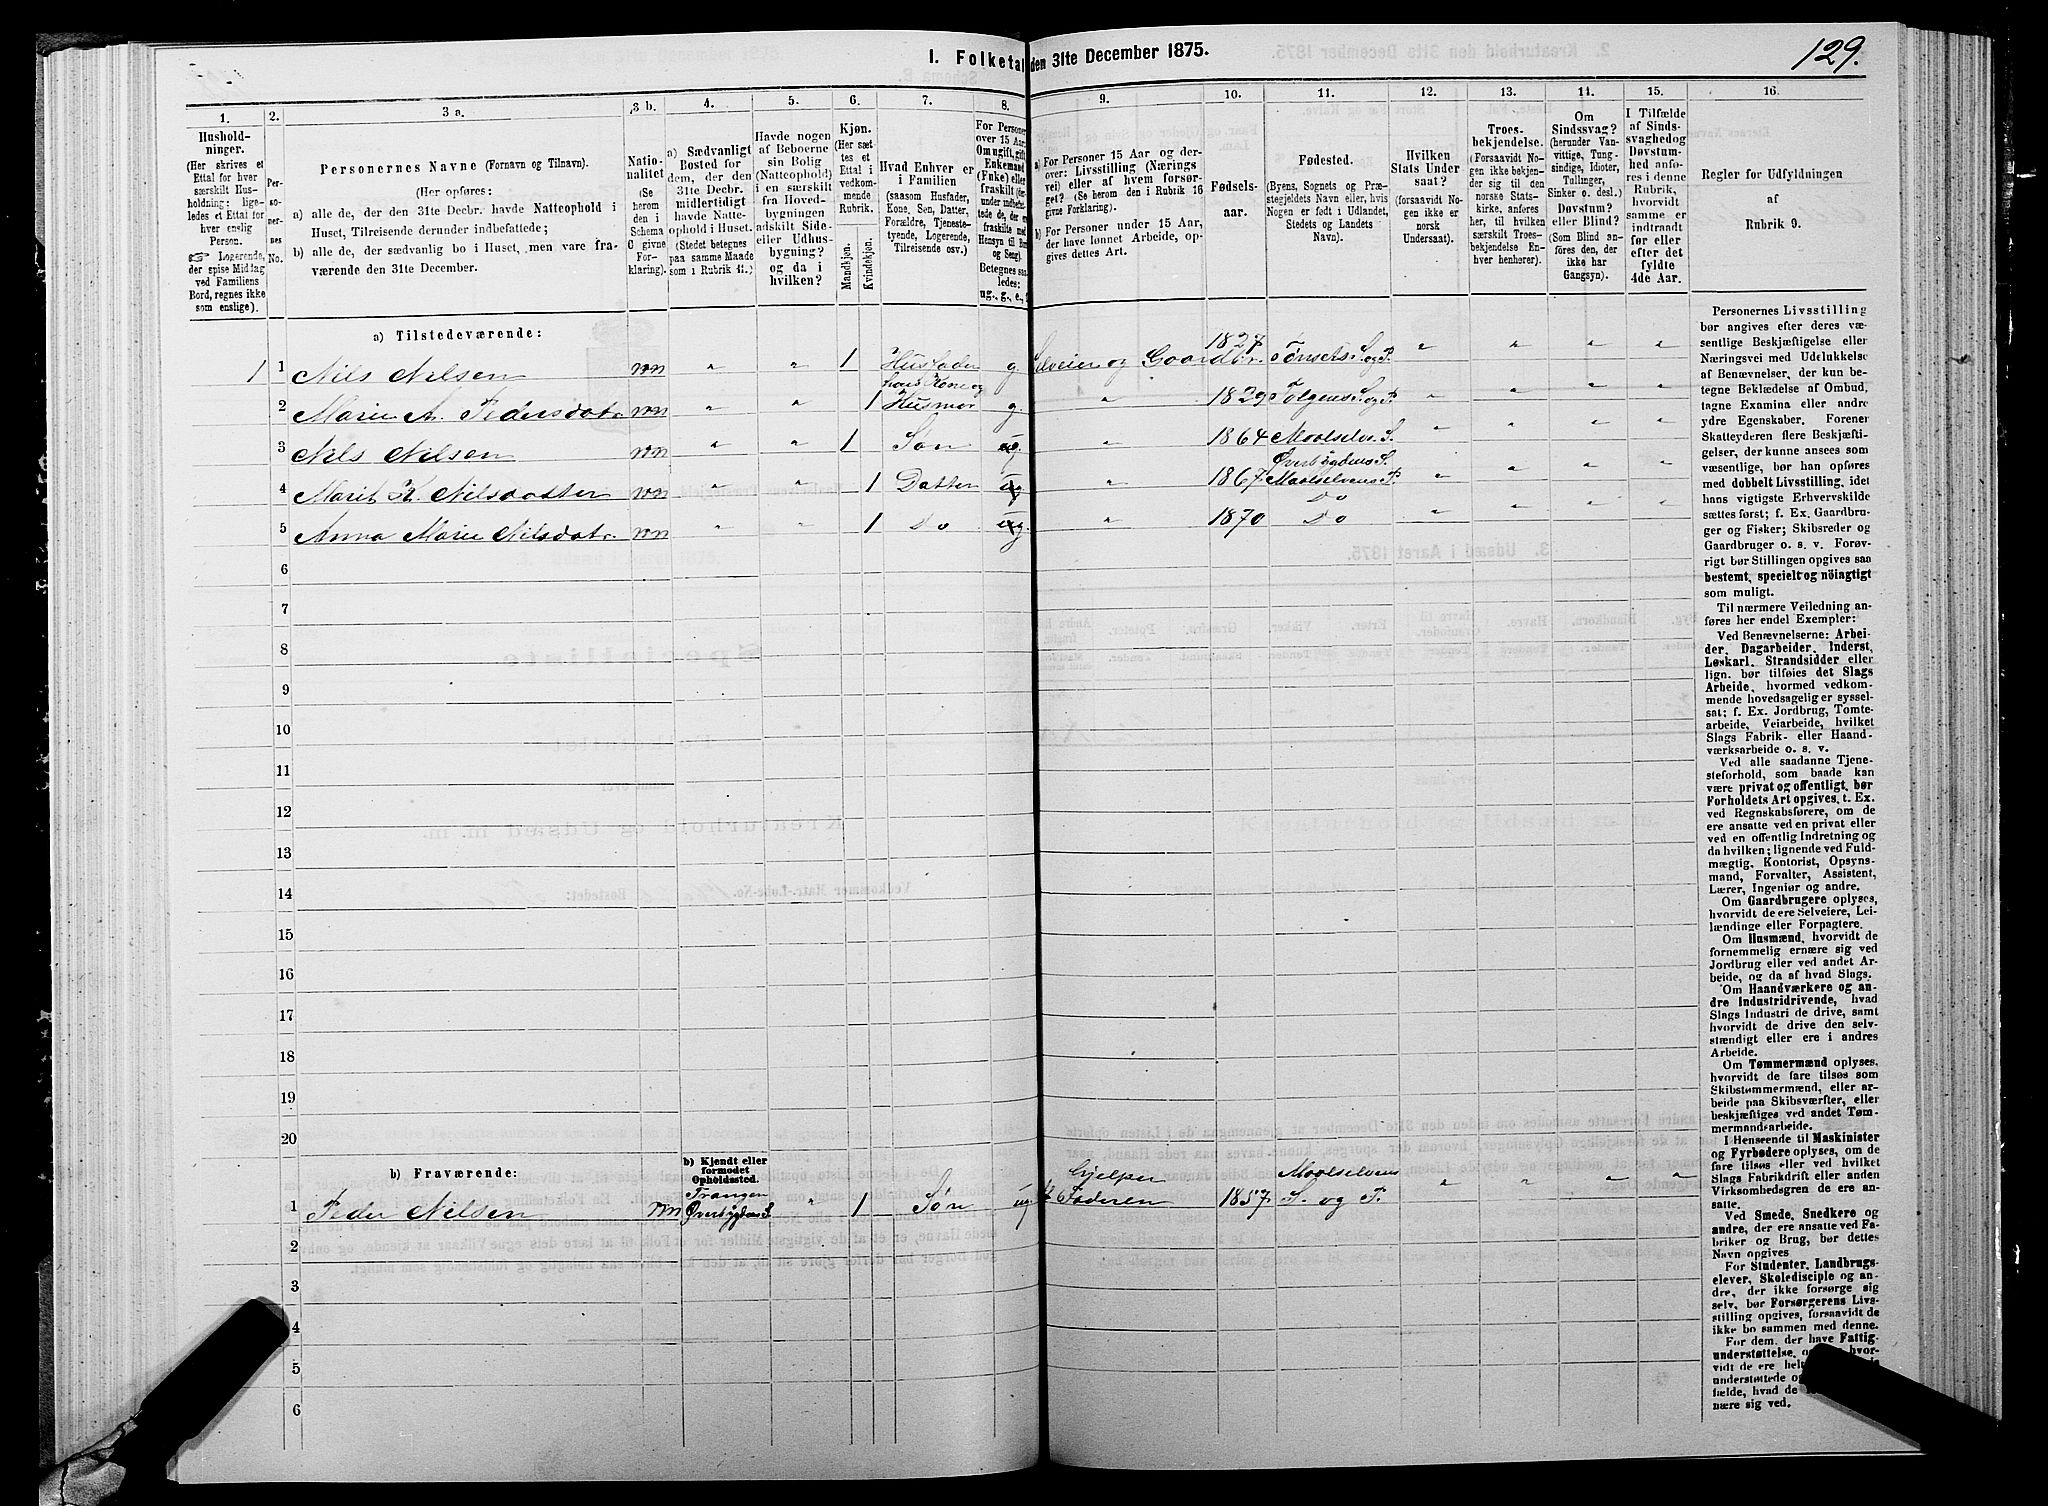 129.
I. Folketal den 31te December 1875.
1.
Hushold-
ninger.
(Her skrives et
Ettal for hver
særskilt Hus-
holdning; lige-
ledes et Ettal for
hver enslig
Person.
☞ Logerende,
der spise Middag
ved Familiens
Bord, regnes ikke
som enslige).
2.
Per-
so-
ner-
nes
No.
3 a.
Personernes Navne (Fornavn og Tilnavn).
(Her opføres:
a) alle de, der den 31te Decbr. havde Natteophold i
Huset, Tilreisende derunder indbefattede;
b) alle de, der sædvanlig bo i Huset, men vare fra-
værende den 31te December.
3 b.
Natio-
nalitet
(Se
herom
den i
Schema
C givne
For-
klaring).
4.
a) Sædvanligt
Bosted for
dem, der den
31te Decbr.
midlertidigt
havde Natte-
ophold i Huset.
(Stedet betegnes
paa samme Maade
som i Rubrik 11.)
5.
Havde nogen
af Beboerne
sin Bolig
(Natteophold)
i en særskilt
fra Hoved-
bygningen
adskilt Side-
eller Udhus-
bygning?
og da i
hvilken?
6.
Kjøn.
(Her sæt-
tes et
Ettal i
vedkom-
mende
Rubrik.
Mandkjøn.
Kvindekjøn.
7.
Hvad Enhver er
i Familien
(saasom Husfader,
Kone, Søn, Datter,
Forældre, Tjeneste-
tyende, Logerende,
Tilreisende osv.)
8.
For Personer
over 15 Aar:
Om ugift, gift,
Enkemand
(Enke) eller
fraskilt
Hensyn til Bord
og Seng).
Betegnes saa-
ledes:
ug., g., e.,
9.
a) For Personer 15 Aar og der-
over: Livsstilling (Nærings-
vei) eller af hvem forsør-
get. (Se herom den i Rubrik 16
givne Forklaring).
b) For Personer under 15 Aar,
der have lønnet Arbeide, op-
gives dettes Art.
10.
Fødsels-
aar.
11.
Fødested.
(Byens, Sognets og Præ-
stegjeldets Navn eller, hvis
Nogen er født i Udlandet,
Stedets og Landets
Navn).
12.
Hvilken
Stats Under
saat?
(forsaavidt No-
gen ikke er
norsk
Undersaat).
13.
Troes-
bekjendelse.
(Forsaavidt No-
gen ikke bekjen-
der sig til den
norske Stats-
kirke, anføres
her, til hvilken
særskilt Troes-
bekjendelse En-
hver henhører).
14.
Om
Sindssvag?
(herunder Van-
vittige, Tung-
sindige, Idioter,
Tullinger,
Sinker o. desl.)
Døvstum?
eller Blind?
(Som Blind an-
føres den, der
ikke har
Gangsyn).
15.
I Tilfælde
af Sinds-
svaghed og
Døvstum-
hed anfø-
res i denne
Rubrik,
hvorvidt
samme er
indtraadt
før eller
efter det
fyldte
4de Aar.
16.
Regler for Udfyldningen
af
Rubrik 9.
a) Tilstedeværende:
1 1 Nils Nilsen nn „ „ 1 Husfader g. Selveier og Gaardbr. 1827 Tønsets S. og P. „ „ „ „
2 Marie M. Pedersdatr. nn „ „ 1 hans Kone og Husmor g. „ 1829 Tolgens S. og P. „ „ „ „
3 Nils Nilsen nn „ „ 1 Søn ug. „ 1864 Maalselv. S. „ „ „ „
4 Marit K. Nilsdatter nn „ „ 1 Datter ug „ 1867. Øverbygdens S. Maalselvens P. „ „ „ „
5 Anna Marie Nilsdatr. nn „ „ 1 Do ug. „ 1870 Do Do „ „ „ „
6
7
8
9
10
11
12
13
14
15
16
17
18
19
20
b) Fraværende:
b) Kjendt eller
formodet
Opholdssted.
1 Peder Nilsen nn Trangen Øverbygdens S. „ 1 Søn ug Hjelper Faderen 1857. Maalselvens S. og P. „ „ „ „
2
3
4
5
6
Personernes Livsstilling
bør angives efter deres væ-
sentlige Beskjæftigelse eller
Næringsvei med Udelukkelse
af Benævnelser, der kun be-
tegne Beklædelse af Ombud,
tagne Examina eller andre
ydre Egenskaber. Forener
Skatteyderen flere Beskjæfti-
gelser, der kunne ansees som
væsentlige, bør han opføres
med dobbelt Livsstilling, idet
hans vigtigste Erhvervskilde
sættes først; f. Ex. Gaardbru-
ger og Fisker; Skibsreder og
Gaardbruger o. s. v. Forøv-
rigt bør Stillingen opgives saa
bestemt, specielt og nöiagtigt
som muligt.
Til nærmere Veiledning an-
føres her endel Exempler:
Ved Benævnelserne: Arbei-
der, Dagarbeider, Inderst,
Løskarl, Strandsidder eller
lign. bør tilføies det Slags
Arbeide, hvormed vedkom-
mende hovedsagelig er syssel-
sat; f. Ex. Jordbrug, Tomte-
arbeide, Veiarbeide, hvilket
Slags Fabrik- eller Haand-
værksarbeide o. s. v.
Ved alle saadanne Tjene-
steforhold, som baade kan
være privat og offentligt, bør
Forholdets Art opgives, t. Ex.
ved Regnskabsførere, om de
ere ansatte ved en privat eller
ved en offentlig Indretning og
da hvilken; lignende ved Fuld-
mægtig, Kontorist, Opsyns-
mand, Forvalter, Assistent,
Lærer, Ingeniør og andre.
Om Gaardbrugere oplyses,
hvorvidt de ere Selveiere, Lei-
lændinge eller Forpagtere.
Om Husmænd, hvorvidt de
fornemmelig ernære sig ved
Jordbrug eller ved andet Ar-
beide, og da af hvad Slags.
Om Haandværkere og an-
dre Industridrivende, hvad
Slags Industri de drive, samt
hvorvidt de drive den selv-
stændigt eller ere i andres
Arbeide.
Om Tømmermænd oplyses,
hvorvidt de fare tilsøs som
Skibstømmermænd, eller ar-
beide paa Skibsværfter, eller
beskjæftiges ved andet Tøm-
mermandsarbeide.
I Henseende til Maskinister
og Fyrbødere oplyses, om de
fare tilsøs eller ved hvilket
Slags Fabrikdrift eller anden
Virksomhedsgren de ere an-
satte.
Ved Smede, Snedkere og
andre, der ere ansatte ved Fa-
briker og Brug, bør dettes
Navn opgives
For Studenter, Landbrugs-
elever, Skoledisciple og an-
dre, der ikke forsørge sig
selv, bør Forsørgerens Livs-
stilling opgives, forsaavidt de
ikke bo sammen med denne.
For dem, der have Fattig-
understøttelse, hvor-
vidt de ere
understøttede
fælde, hvad de
nære sig ved.